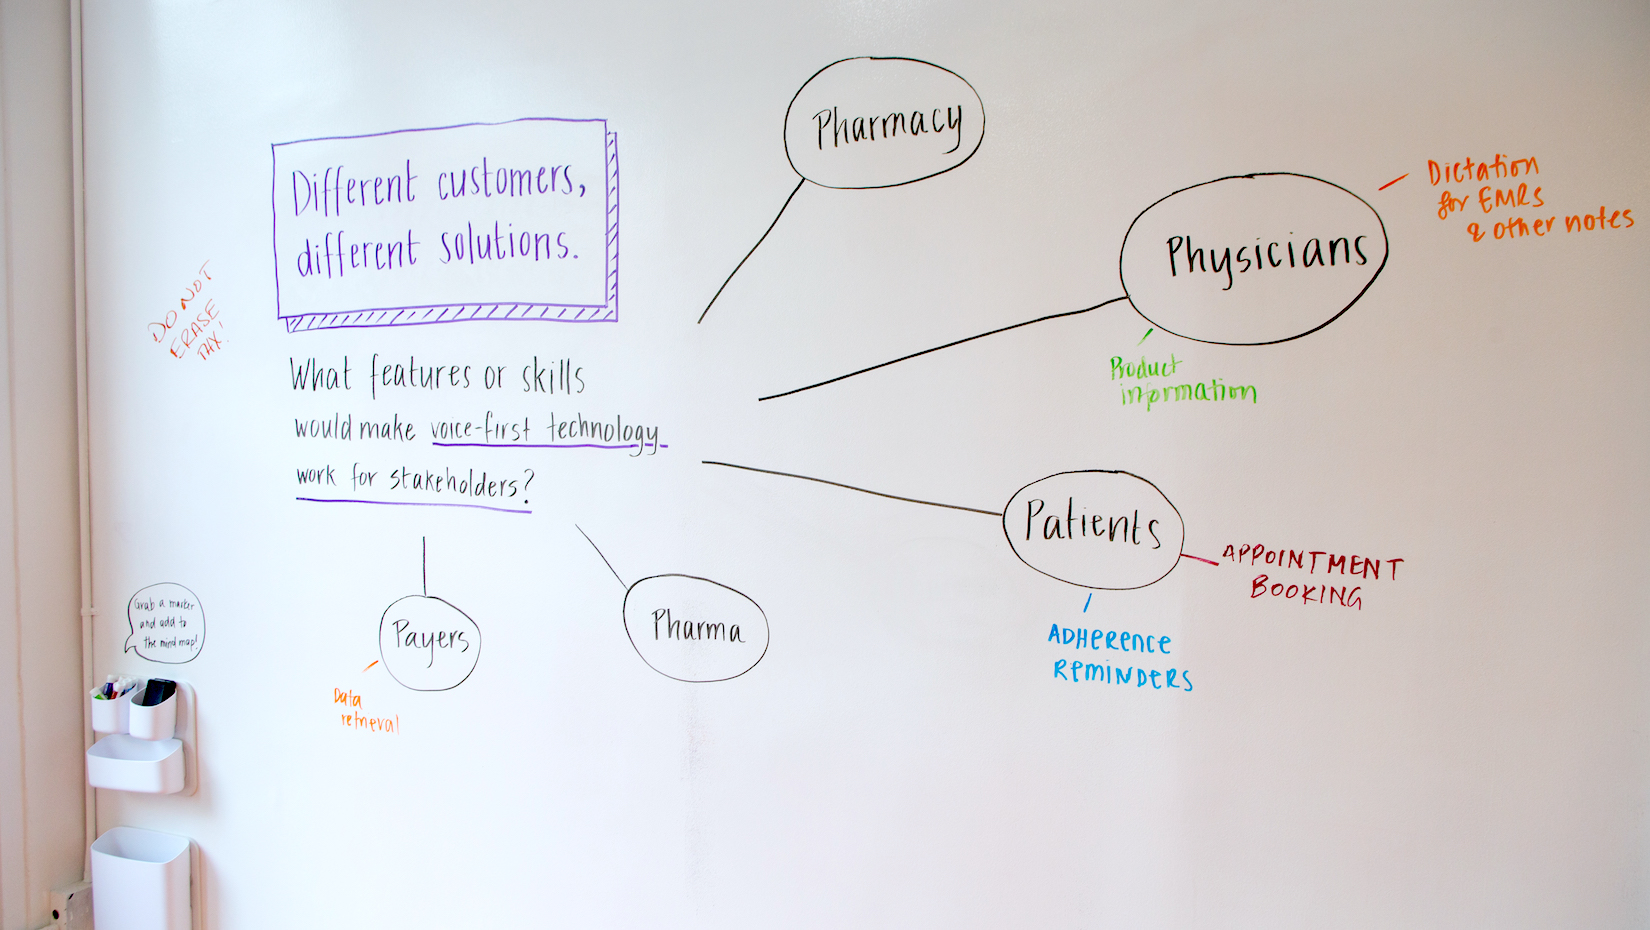 Different customers,
different solutions.
What features or skills
would make voice-first technology
work for stakeholders?
DO NOT
ERASE
THX!
Grab a marker
and add to
the mind map!
Pharmacy
Physicians
Dictation
for EMRS
& other notes
Product
information
Patients
APPOINTMENT
BOOKING
ADHERENCE
REMINDERS
Pharma
Payers
Data
retrieval